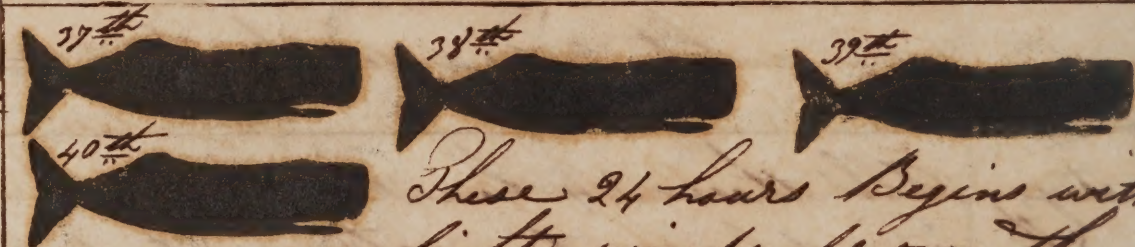 37th 38th 39th
40th
These 24 hours Begins with